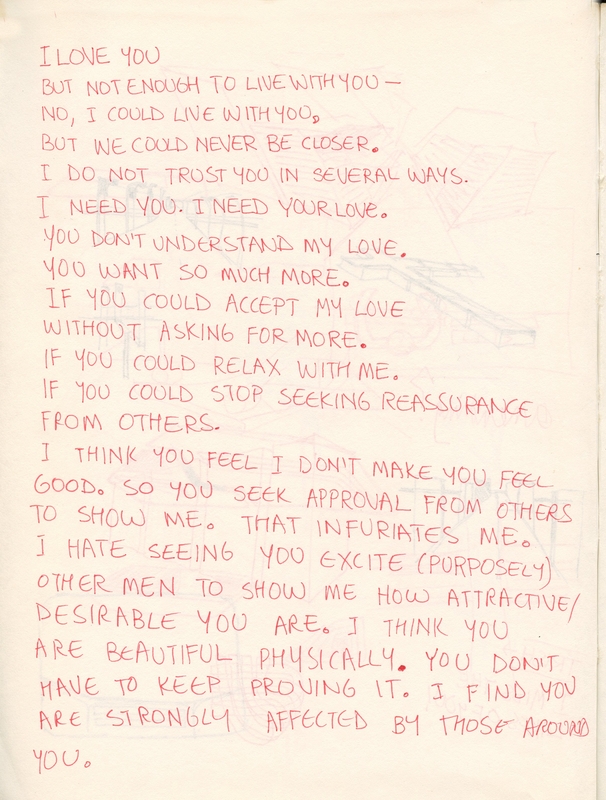 I LOVE YOU
BUT NOT ENOUGH TO LIVE WITH YOU —
NO, I COULD LIVE WITH YOU,
BUT WE COULD NEVER BE CLOSER.
I DO NOT TRUST YOU IN SEVERAL WAYS.
I NEED YOU. I NEED YOUR LOVE.
YOU DON'T UNDERSTAND MY LOVE.
YOU WANT SO MUCH MORE.
IF YOU COULD ACCEPT MY LOVE
WITHOUT ASKING FOR MORE.
IF YOU COULD RELAX WITH ME.
IF YOU COULD STOP SEEKING REASSURANCE
FROM OTHERS.
I THINK YOU FEEL I DON'T MAKE YOU FEEL
GOOD. SO YOU SEEK APPROVAL FROM OTHERS
TO SHOW ME. THAT INFURIATES ME.
I HATE SEEING YOU EXCITE (PURPOSELY)
OTHER MEN TO SHOW ME HOW ATTRACTIVE/
DESIRABLE YOU ARE. I THINK YOU
ARE BEAUTIFUL PHYSICALLY. YOU DON'T
HAVE TO KEEP PROVING IT. I FIND YOU
ARE STRONGLY AFFECTED BY THOSE AROUND
YOU.